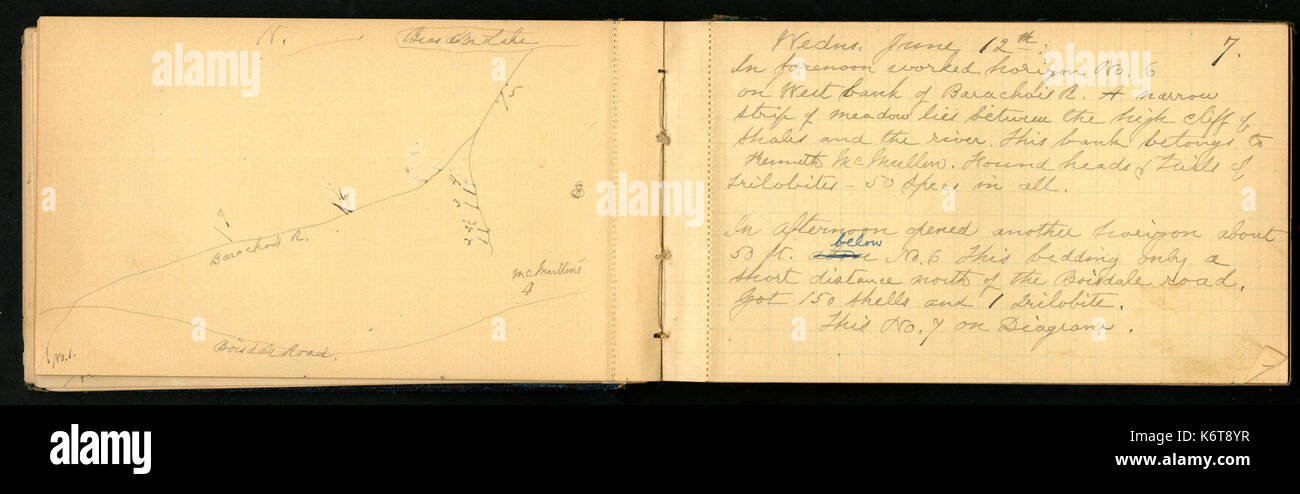 N.
Bras d'Or Lake
5
6
3 4
2
7
Barachois R.
8
McMullins
4
Boisdale Road.
No. 1.
Wednes. June 12th. 7.
In forenoon worked horizon No. 6
on West bank of Barachois R. A narrow
strip of meadow lies between the high cliff of
shales and the river. This bank belongs to
Kenneth McMullen. Found heads & tails of
trilobites - 50 specs in all.
In afternoon opened another horizon about
below
50 ft. No. 6 This bedding only a
short distance north of the Boisdale road.
Got 150 shells and 1 Trilobite.
This No. 7 on Diagram.
alamy
alamy
Image ID: K6T8YR
www.alamy.com